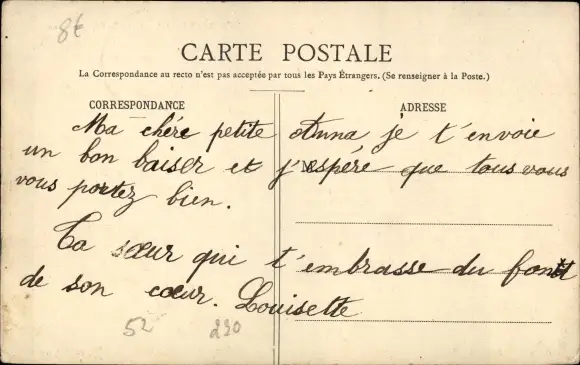 8€
CARTE POSTALE
La Correspondance au recto n'est pas acceptée par tous les Pays Étrangers. (Se renseigner à la Poste.)
CORRESPONDANCE
ADRESSE
Ma chére petite Anna je t'envoie
un bon baiser et j'espére que tous vous
vous portez bien.
Ta sœur qui t'embrasse du fond
de son cœur. Louisette
52 230